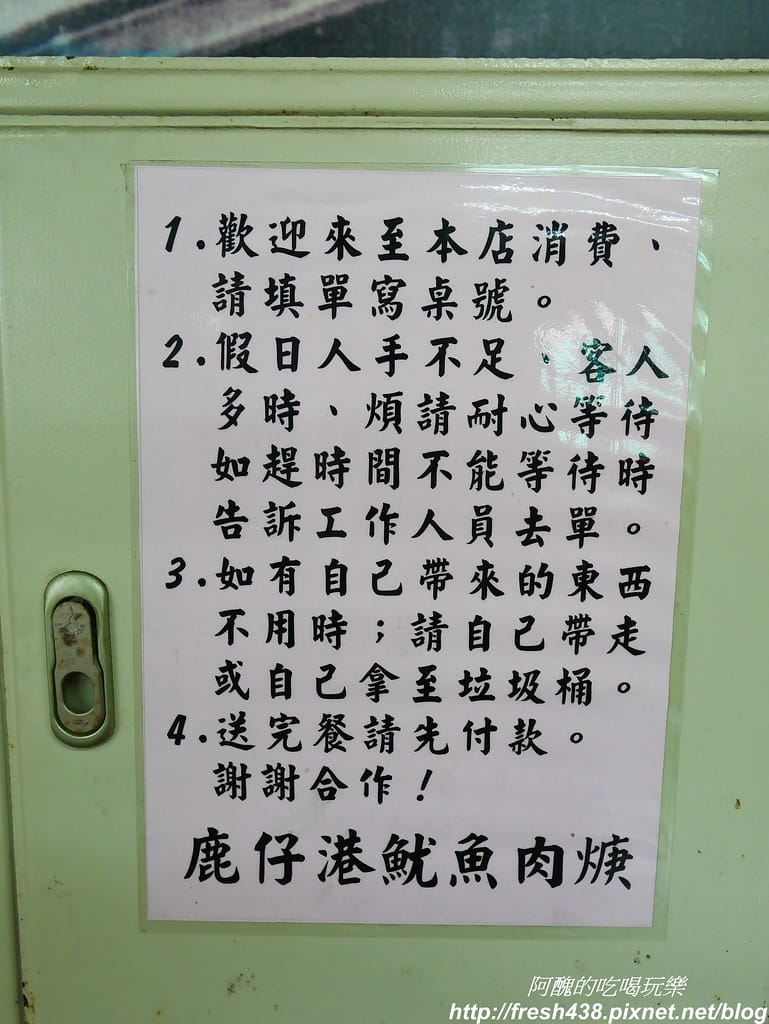 1.歡迎來至本店消費、
請填單寫桌號。
2.假日人手不足、客人
多時、煩請耐心等待
如趕時間不能等待時
告訴工作人員去單。
3.如有自己帶來的東西
不用時;請自己帶走
或自己拿至垃圾桶。
4.送完餐請先付款。
謝謝合作!
鹿仔港魷魚肉焿
阿醜的吃喝玩樂
http://fresh438.pixnet.net/blog